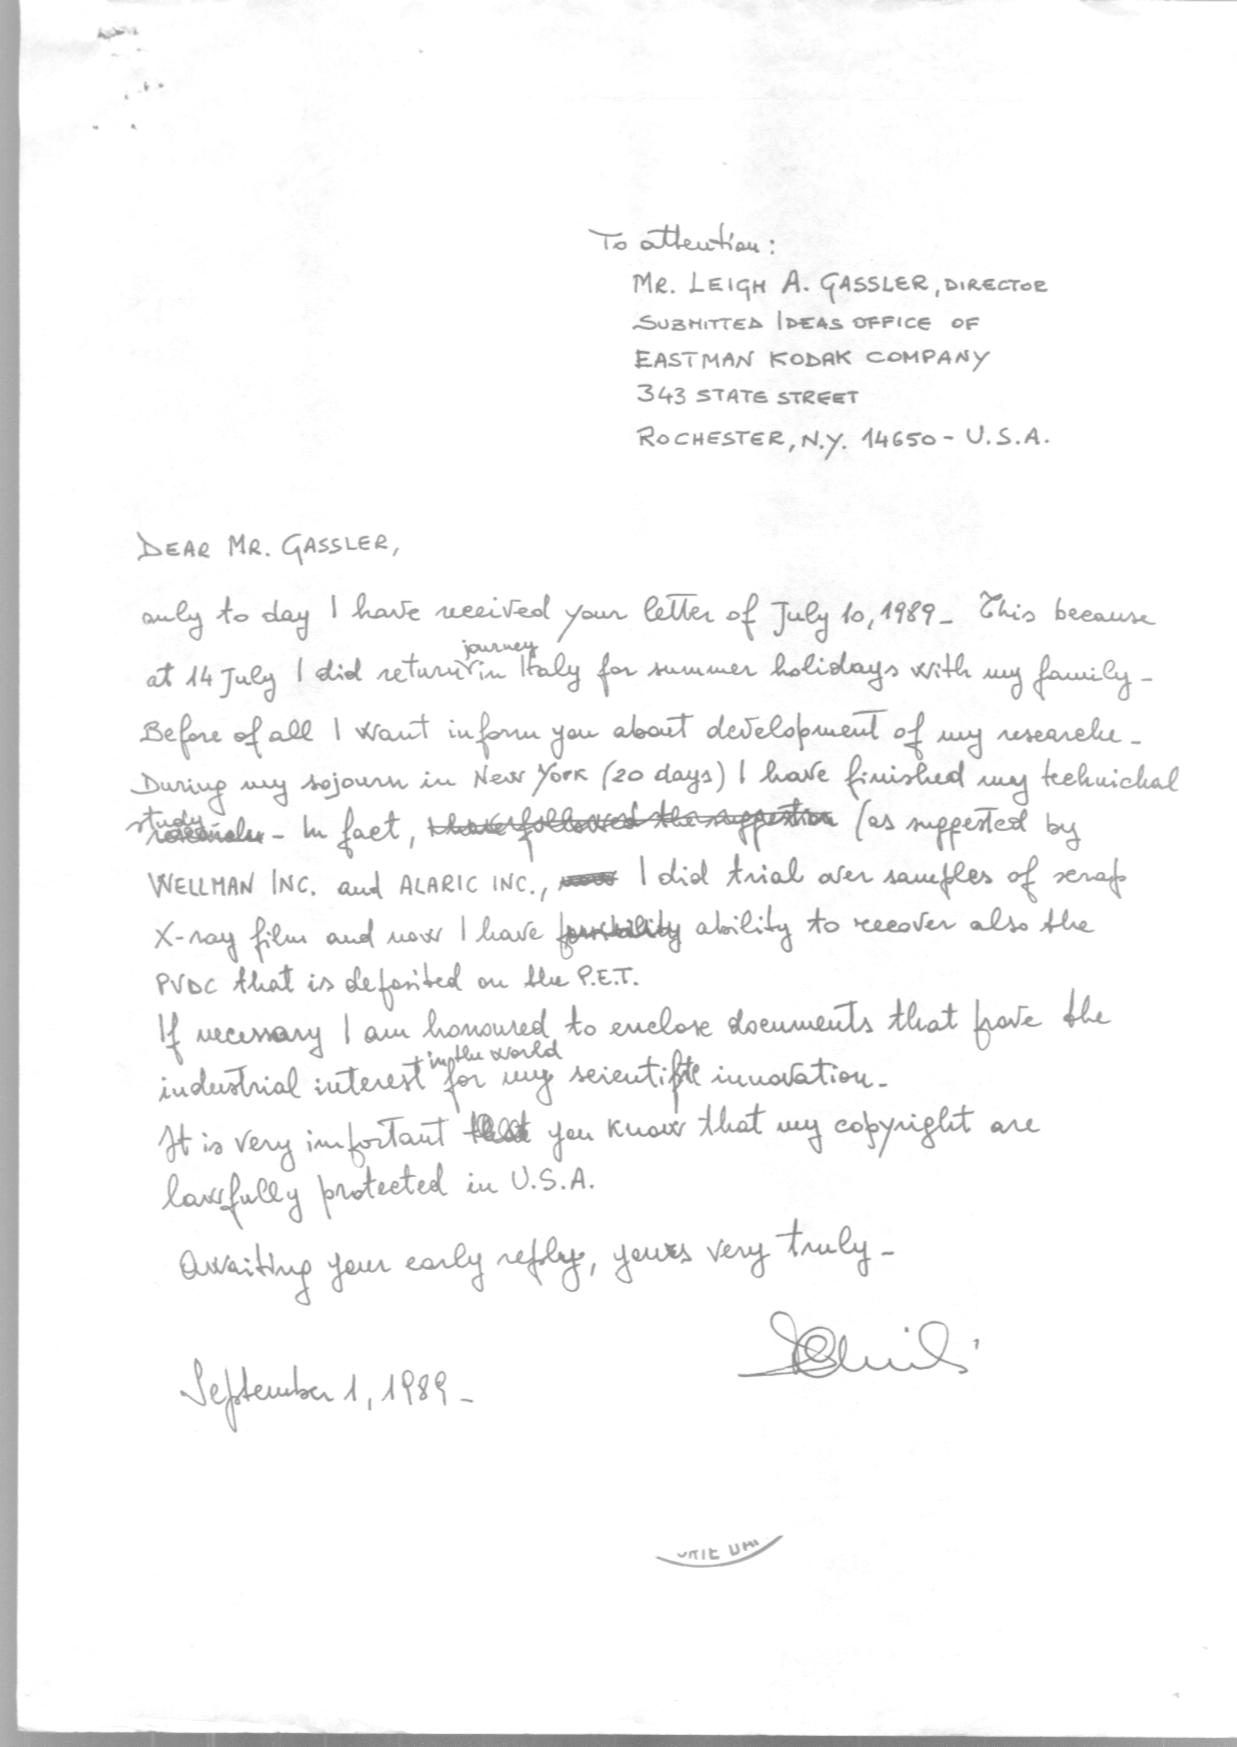 To attention:
MR. LEIGH A. GASSLER, DIRECTOR
SUBMITTED IDEAS OFFICE OF
EASTMAN KODAK COMPANY
343 STATE STREET
ROCHESTER, N.Y. 14650 - U.S.A.
DEAR MR. GASSLER,
only to day I have received your letter of July 10, 1989_ This because
journey
at 14 July I did return in Italy for summer holidays with my family_
Before of all I want inform you about development of my researche_
During my sojourn in New York (20 days) I have finished my technichal
study
- In fact, I have followed the suggestion (as suggested by
WELLMAN INC. and ALARIC INC., now I did trial over samples of scrap
X-ray film and now I have possibility ability to recover also the
PVDC that is deposited on the P.E.T.
If necessary I am honoured to enclose documents that prove the
in the world
industrial interest for my scientific innovation_
It is very important that you know that my copyright are
lawfully protected in U.S.A.
Awaiting your early reply, yours very truly_
September 1, 1989_